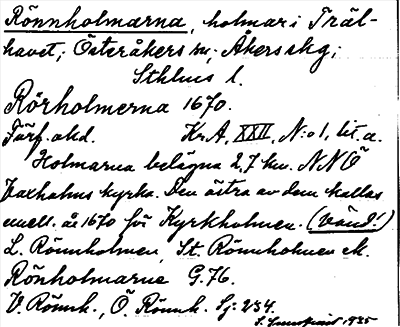 Rönnholmarna, holmar i Träl-
havet; Österåkers sn; Åkers skg;
Sthlms l.
Rörholmerna 1670.
Förf. okd. Kr. A. XXII, N:o 1, lit. a.
Holmarna belägna 2,7 km. NNÖ
Vaxholms kyrka. Den östra av dem kallas
emell. år 1670 för Kyrkholmen. (Vänd!)
L. Rönnholmen, St. Rönnholmen ek.
Rönholmarne G. 76.
V. Rönnh., Ö. Rönnh. Sj: 234.
1935